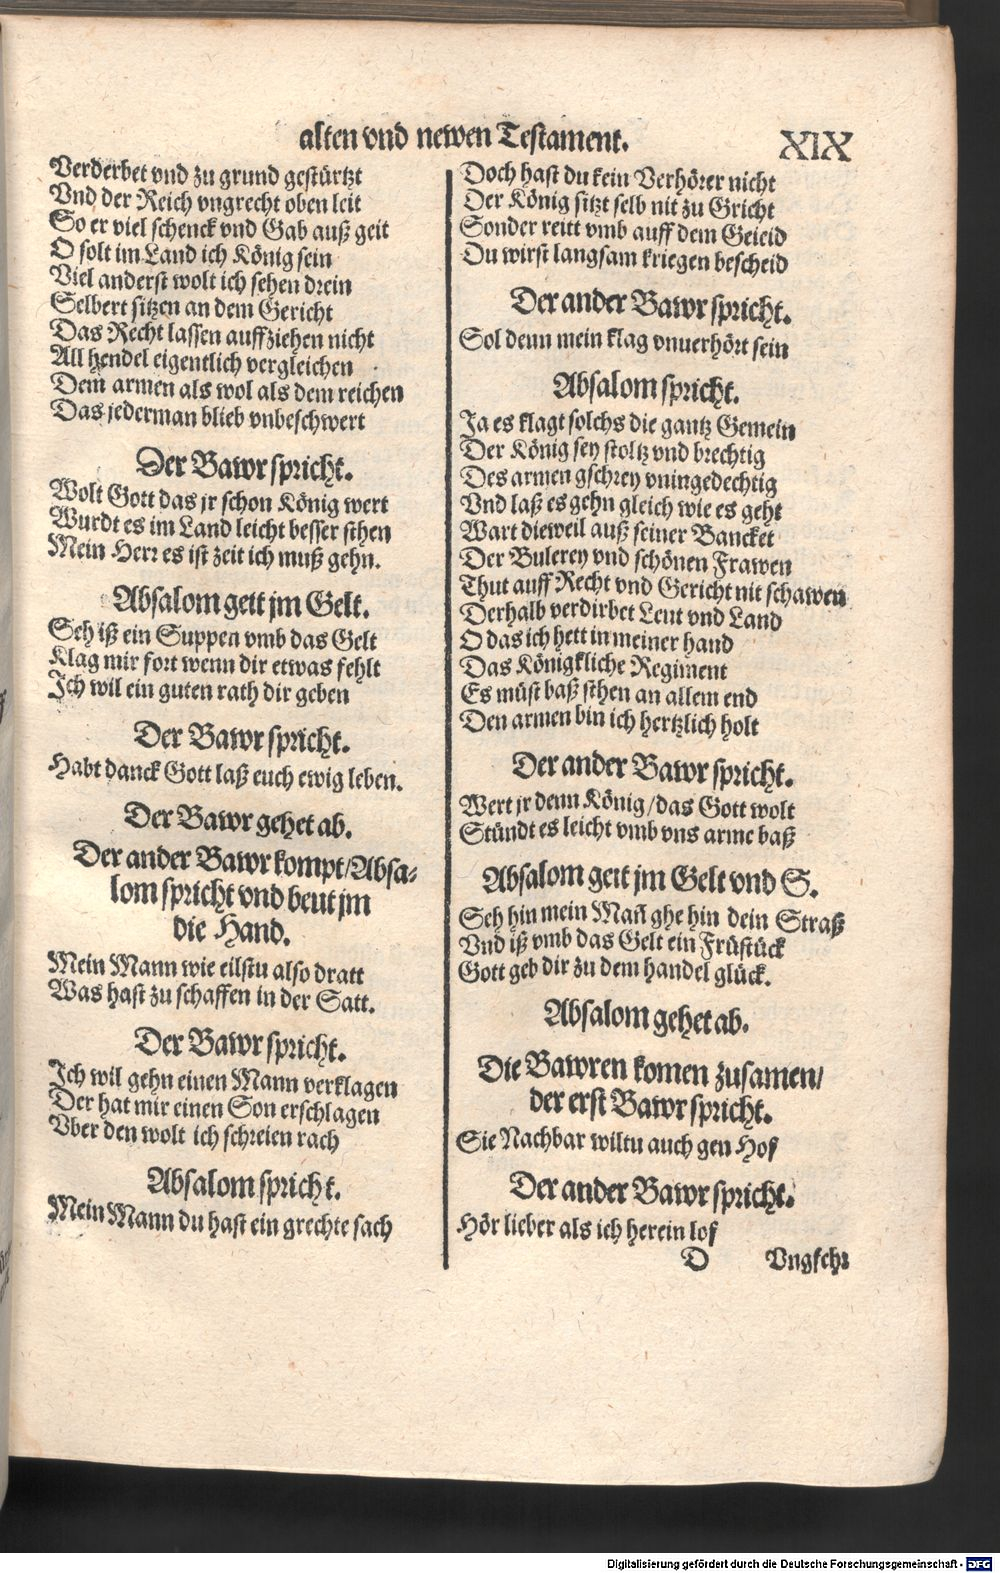 alten vnd newen Testament.
XIX
Verderbet vnd zu grund gestürtzt
Vnd der Reich vngrecht oben leit
So er viel schenck vnd Gab auß geit
O solt im Land ich König sein
Viel anderst wolt ich sehen drein
Selbert sitzen an dem Gericht
Das Recht lassen auffziehen nicht
All hendel eigentlich vergleichen
Dem armen als wol als dem reichen
Das jederman blieb vnbeschwert
Der Bawr spricht.
Wolt Gott das jr schon König wert
Wurdt es im Land leicht besser sthen
Mein Herr es ist zeit ich muß gehn.
Absalom gett jm Gelt.
Seh iß ein Suppen vmb das Gelt
Klag mir fort wenn dir etwas fehlt
Ich wil ein guten rath dir geben
Der Bawr spricht.
Habt danck Gott laß euch ewig leben.
Der Bawr gehet ab.
Der ander Bawr kompt/Absa-
lom spricht vnd beut jm
die Hand.
Mein Mann wie eilstu also dratt
Was hast zu schaffen in der Satt.
Der Bawr spricht.
Ich wil gehn einen Mann verklagen
Der hat mir einen Son erschlagen
Vber den wolt ich schreien rach
Absalom spricht.
Mein Mann du hast ein grechte sach
Doch hast du kein Verhörer nicht
Der König sitzt selb nit zu Gricht
Sonder reitt vmb auff dem Geieid
Du wirst langsam kriegen bescheid
Der ander Bawr spricht.
Sol denn mein klag vnuerhört sein
Absalom spricht.
Ja es klagt solchs die gantz Gemein
Der König sey stoltz vnd brechtig
Des armen gschrey vningedechtig
Vnd laß es gehn gleich wie es geht
Wart dieweil auß seiner Bancket
Der Bulerey vnd schönen Frawen
Thut auff Recht vnd Gericht nit schawen
Derhalb verdirbet Leut vnd Land
O das ich hett in meiner hand
Das Königkliche Regiment
Es müst baß sthen an allem end
Den armen bin ich hertzlich holt
Der ander Bawr spricht.
Wert jr denn König/das Gott wolt
Stündt es leicht vmb vns arme baß
Absalom geit jm Gelt vnd S.
Seh hin mein Mañ ghe hin dein Straß
Vnd iß vmb das Gelt ein Früstück
Gott geb dir zu dem handel glück.
Absalom gehet ab.
Die Bawren komen zusamen/
der erst Bawr spricht.
Sie Nachbar wiltu auch gen Hof
Der ander Bawr spricht.
Hör lieber als ich herein lof
D Vngfehr
Digitalisierung gefördert durch die Deutsche Forschungsgemeinschaft - DFG